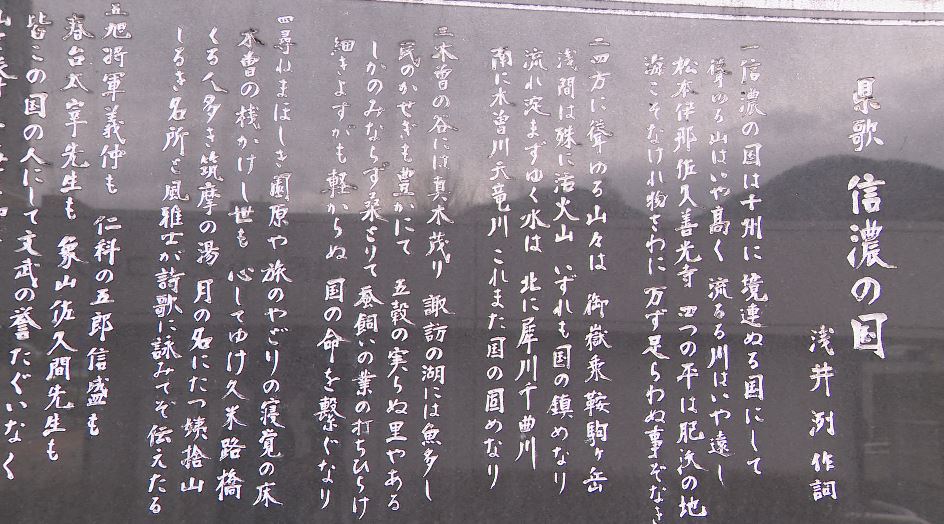 県歌 信濃の国
浅井 洌 作詞
一 信濃の国は十州に 境連ぬる国にして
聳ゆる山はいや高く 流るる川はいや遠し
松本伊那佐久善光寺 四つの平は肥沃の地
海こそなけれ物さわに 万ず足らわぬ事ぞなき
二 四方に聳ゆる山々は 御嶽乗鞍駒ヶ岳
浅間は殊に活火山 いずれも国の鎮めなり
流れ淀まずゆく水は 北に犀川千曲川
南に木曽川天竜川 これまた国の固めなり
三 木曽の谷には真木茂り 諏訪の湖には魚多し
民のかせぎも豊かにて 五穀の実らぬ里やある
しかのみならず桑とりて 蚕飼いの業の打ちひらけ
細きよすがも軽からぬ 国の命を繋ぐなり
四 尋ねまほしき園原や 旅のやどりの寝覚の床
木曽の桟かけし世も 心してゆけ久米路橋
くる人多き筑摩の湯 月の名にたつ姨捨山
しるき名所と風雅士が 詩歌に詠みてぞ伝えたる
五 旭将軍義仲も 仁科の五郎信盛も
春台太宰先生も 象山佐久間先生も
皆この国の人にして 文武の誉たぐいなく